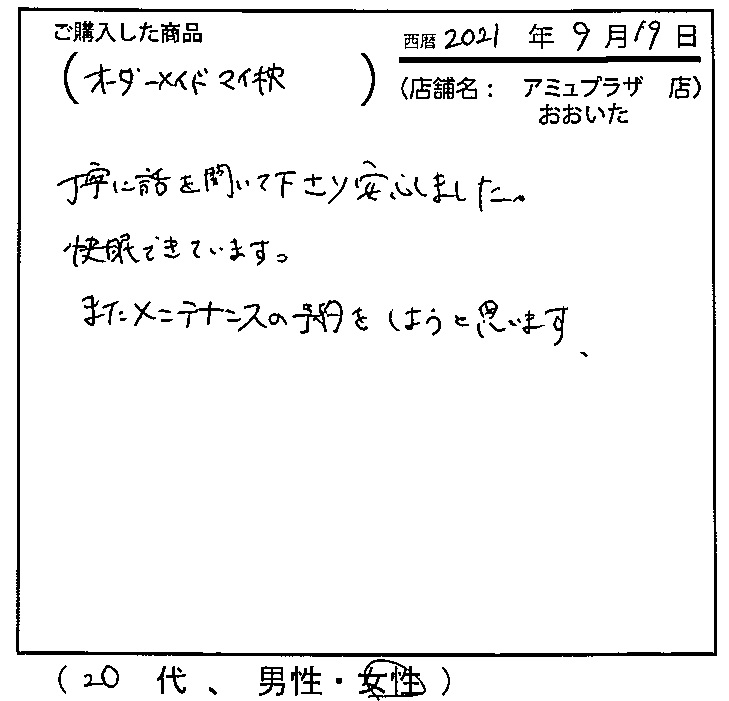 ご購入した商品
西暦 2021 年 9 月 19 日
(オーダーメイドマイ枕)
(店舗名： アミュプラザ 店)
おおいた
丁寧に話を聞いて下さり安心しました。
快眠できています。
またメンテナンスの予約をしようと思います、
(20 代、男性・女性)